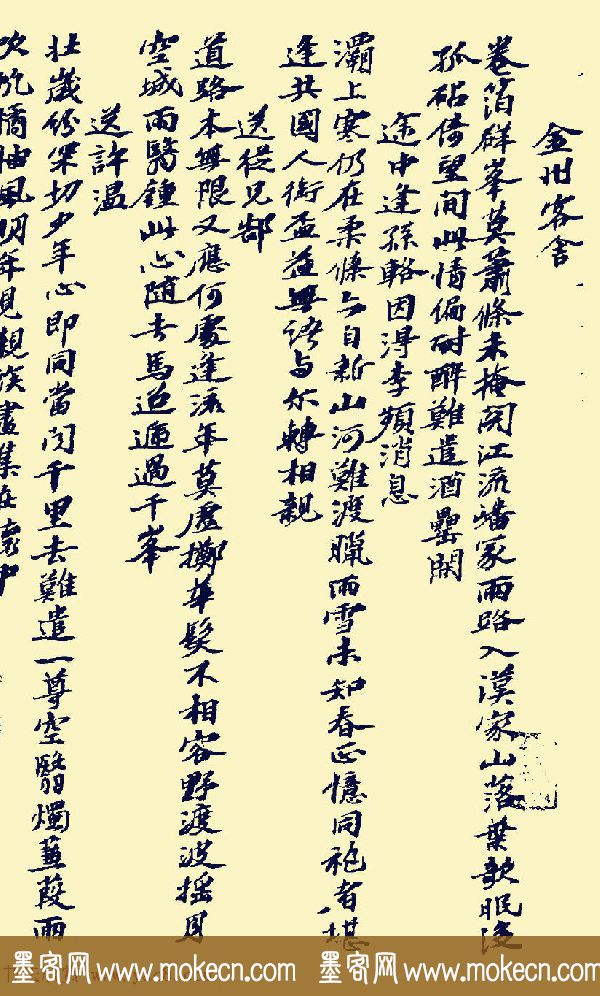 金州客舍
卷箔群峯莫蕭條未掩関江流嶓冢雨路入漢家山落葉欹眠後
孤砧倚望間此情偏耐醉難遣酒罍閑
途中逢孫輅因得李頻消息
灞上寒仍在柔條亦自新山河難渡臘雨雪未知春正憶同袍者堪
逢共國人銜盃益無語与尔轉相親
送從兄郜
道路本無限又應何處逢流年莫虛擲華髮不相容野渡波搖月
空城雨翳鍾此心隨去馬迢遞過千峯
送許温
壮歲分罙切少年心即同當聞千里去難遣一尊空翳燭蒹葭雨
吹帆橘柚風明年見親族盡集在懷中
墨客网 www.mokecn.com 墨客网 www.mokecn.com